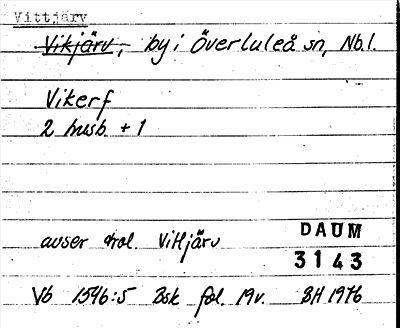 Vittjärv
Vikjärv, by i Överluleå sn, Nb.l.
Vikerf
2 husb. + 1
avser trol. Vittjärv
DAUM
3143
Vb 1546:5 Bsk fol. 19v. BH 1976